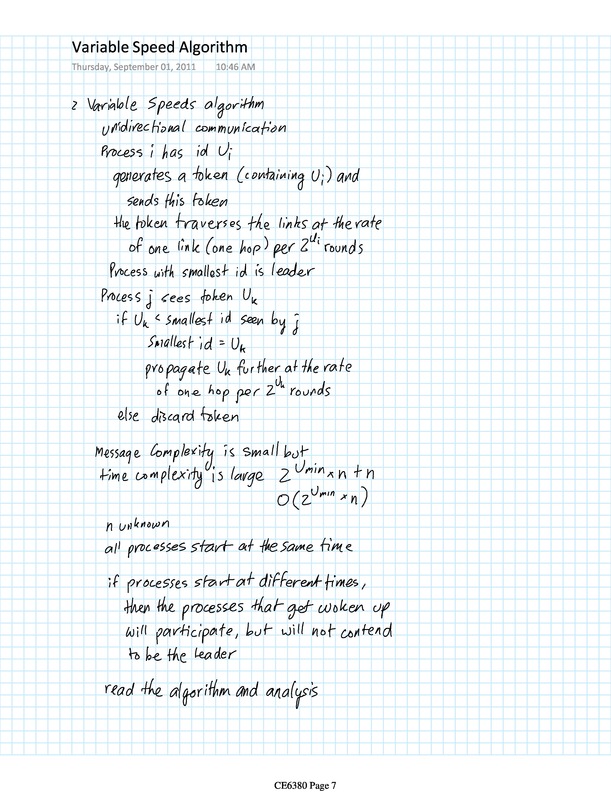 Variable Speed Algorithm
Thursday, September 01, 2011 10:46 AM
2 Variable Speeds algorithm
unidirectional communication
Process i has id Uᵢ
generates a token (containing Uᵢ) and
sends this token
the token traverses the links at the rate
of one link (one hop) per 2^Uᵢ rounds
Process with smallest id is leader
Process j sees token Uₖ
if Uₖ < smallest id seen by j
smallest id = Uₖ
propagate Uₖ further at the rate
of one hop per 2^Uₖ rounds
else discard token
Message Complexity is small but
time complexity is large 2^Umin × n + n
O(2^Umin × n)
n unknown
all processes start at the same time
if processes start at different times,
then the processes that get woken up
will participate, but will not contend
to be the leader
read the algorithm and analysis
CE6380 Page 7